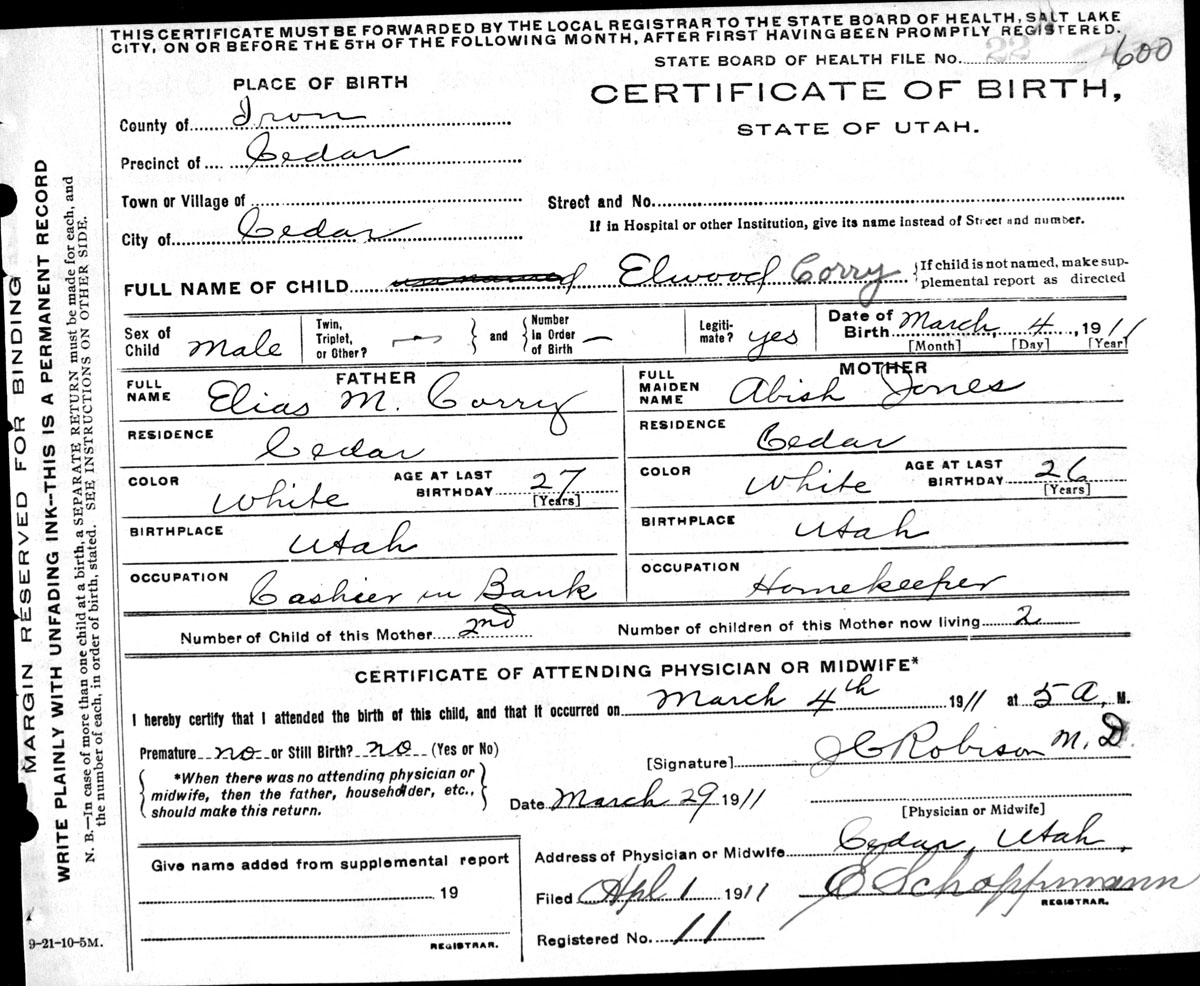 THIS CERTIFICATE MUST BE FORWARDED BY THE LOCAL REGISTRAR TO THE STATE BOARD OF HEALTH, SALT LAKE
CITY, ON OR BEFORE THE 5TH OF THE FOLLOWING MONTH, AFTER FIRST HAVING BEEN PROMPTLY REGISTERED.
STATE BOARD OF HEALTH FILE No. 22 600
PLACE OF BIRTH
CERTIFICATE OF BIRTH,
STATE OF UTAH.
County of Iron
Precinct of Cedar
Town or Village of
Street and No.
City of Cedar
If in Hospital or other Institution, give its name instead of Street and number.
FULL NAME OF CHILD Elwood Corry { If child is not named, make sup-
plemental report as directed
Sex of Child Male
Twin, Triplet, or Other? — } and { Number in Order of Birth —
Legiti-mate? yes
Date of Birth March 4, 1911
[Month] [Day] [Year]
FATHER
FULL NAME Elias M. Corry
RESIDENCE Cedar
COLOR White AGE AT LAST BIRTHDAY 27
[Years]
BIRTHPLACE Utah
OCCUPATION Cashier in Bank
MOTHER
FULL MAIDEN NAME Abish Jones
RESIDENCE Cedar
COLOR White AGE AT LAST BIRTHDAY 26
[Years]
BIRTHPLACE Utah
OCCUPATION Homekeeper
Number of Child of this Mother 2nd Number of children of this Mother now living 2
CERTIFICATE OF ATTENDING PHYSICIAN OR MIDWIFE*
I hereby certify that I attended the birth of this child, and that it occurred on March 4th 1911 at 5 A. M.
Premature no or Still Birth? no (Yes or No)
[Signature] J C Robison M. D.
{ *When there was no attending physician or
midwife, then the father, householder, etc.,
should make this return. }
Date March 29 1911
[Physician or Midwife]
Address of Physician or Midwife Cedar, Utah,
Give name added from supplemental report
19
REGISTRAR.
Filed Apl 1 1911 E Schoppmann
REGISTRAR.
Registered No. 11
MARGIN RESERVED FOR BINDING
WRITE PLAINLY WITH UNFADING INK--THIS IS A PERMANENT RECORD
N. B.—In case of more than one child at a birth, a SEPARATE RETURN must be made for each, and
the number of each, in order of birth, stated. SEE INSTRUCTIONS ON OTHER SIDE.
9-21-10-5M.